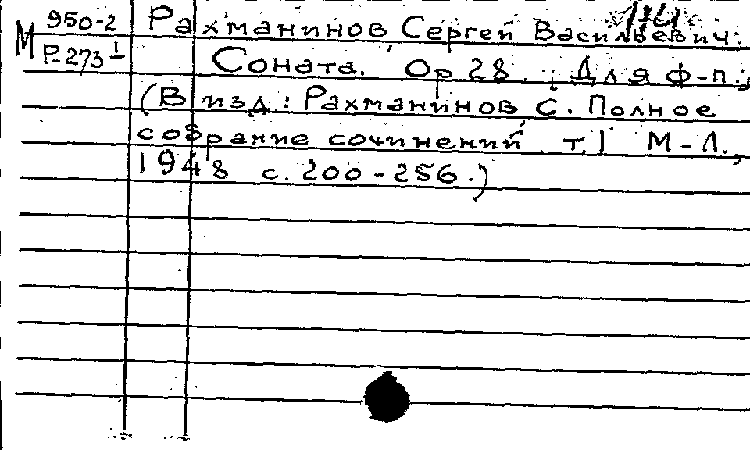 М 950-2 Рахманинов Сергей Васильевич.
Р-273 1 Соната. Op 28. Для ф-п.;
(В изд: Рахманинов С. Полное
собрание сочинений т. I М-Л.,
1948 с. 200-256.)